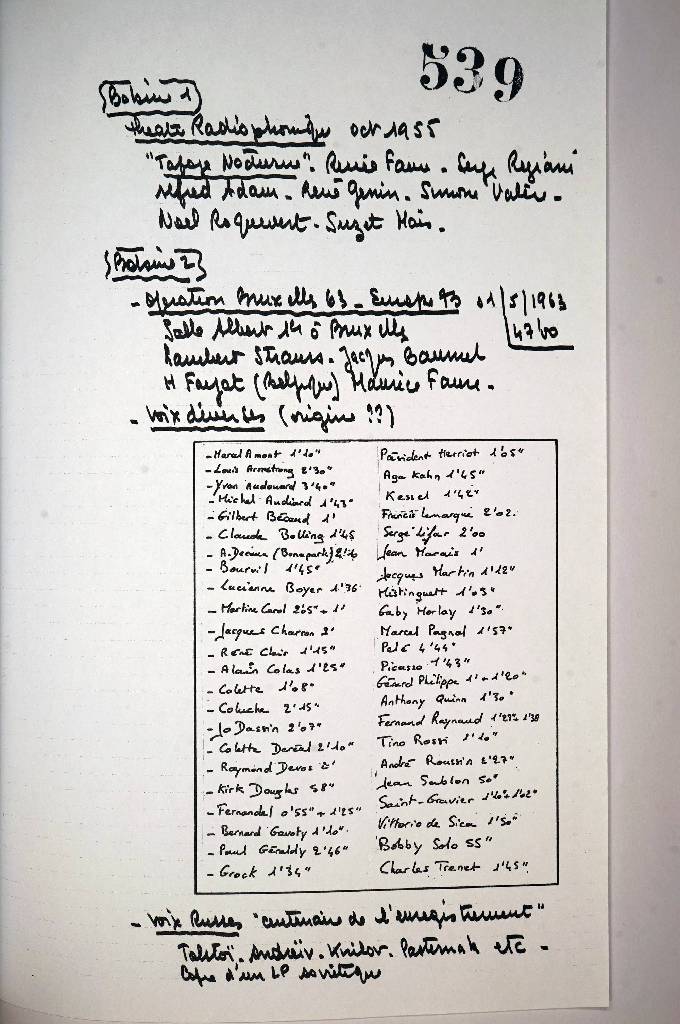 539
Bobine 1
Theatre Radiophonique oct 1955
"Tapage Nocturne". Renée Faure - Serge Regiani
Alfred Adam - René Genin - Simone Valère -
Noel Roquevert - Suzet Maïs.
Bobine 2
- Opération Bruxelles 63 - Europe 93 01/5/1963
Salle Albert 1er à Bruxelles 47'00
Rambert Strauss - Jacques Baumel
H Fayat (Belgique) Maurice Faure -
- Voix diverses (origine ??)
- Marcel Amont 1'10"
- Louis Armstrong 2'30"
- Yvan Audouard 3'40"
- Michel Audiard 1'43"
- Gilbert Bécaud 1'
- Claude Bolling 1'45
- A. Decaux (Bonaparte)
- Bourvil 1'45"
- Lucienne Boyer 1'36
- Martine Carol 2'05" + 1'
- Jacques Charron 2'
- René Clair 1'15"
- Alain Colas 1'25"
- Colette 1'08"
- Coluche 2'15"
- Jo Dassin 2'07"
- Colette Deréal 2'10"
- Raymond Devos 2'
- Kirk Douglas 58"
- Fernandel 0'55" + 1'25"
- Bernard Gavoty 1'10"
- Paul Géraldy 2'46"
- Grock 1'34"
Président Herriot 1'05"
Aga Kahn 1'45"
Kessel 1'42"
Francis Lemarque 2'02
Serge Lifar 2'00
Jean Marais 1'
Jacques Martin 1'12"
Mistinguett 1'03"
Gaby Morlay 1'30"
Marcel Pagnol 1'57"
Pelé 4'44"
Picasso 1'43"
Gérard Philippe 1' + 1'20"
Anthony Quinn 1'30"
Fernand Raynaud 1'27" 1'38
Tino Rossi 1'10"
André Roussin 2'27"
Jean Sablon 50"
Saint-Granier 1'10" 1'02"
Vittorio de Sica 1'50"
Bobby Solo 55"
Charles Trenet 1'45"
- Voix Russes "centenaire de l'enregistrement"
Tolstoï. Andreïv. Pasternak etc -
Copie d'un LP soviétique